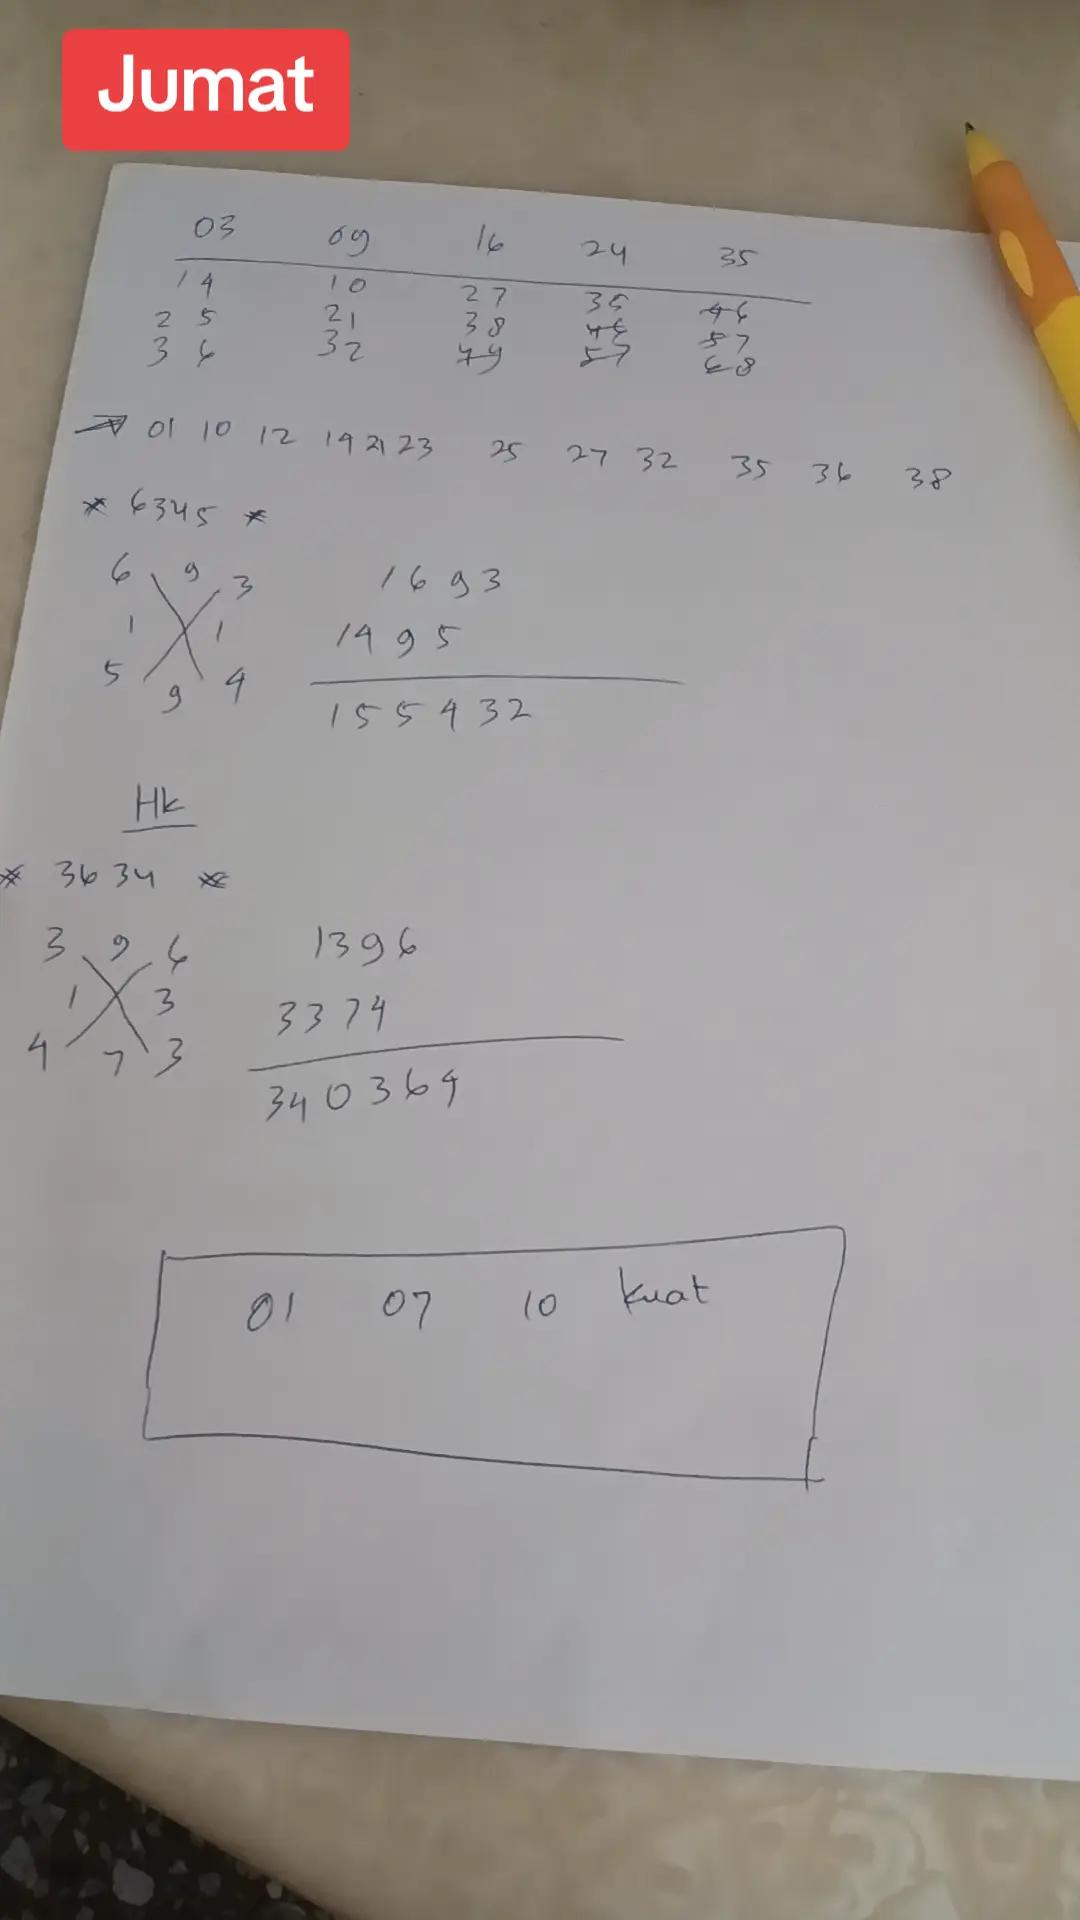 Jumat
03 09 16 24 35
14 10 27 35 46
25 21 38 46 57
36 32 49 57 68
01 10 12 14 21 23 25 27 32 35 36 38
* 6345 *
6 9 3
1 1
5 9 4
1693
1495
155432
Hk
* 3634 *
3 9 6
1 3
4 7 3
1396
3374
340364
01 07 10 kuat